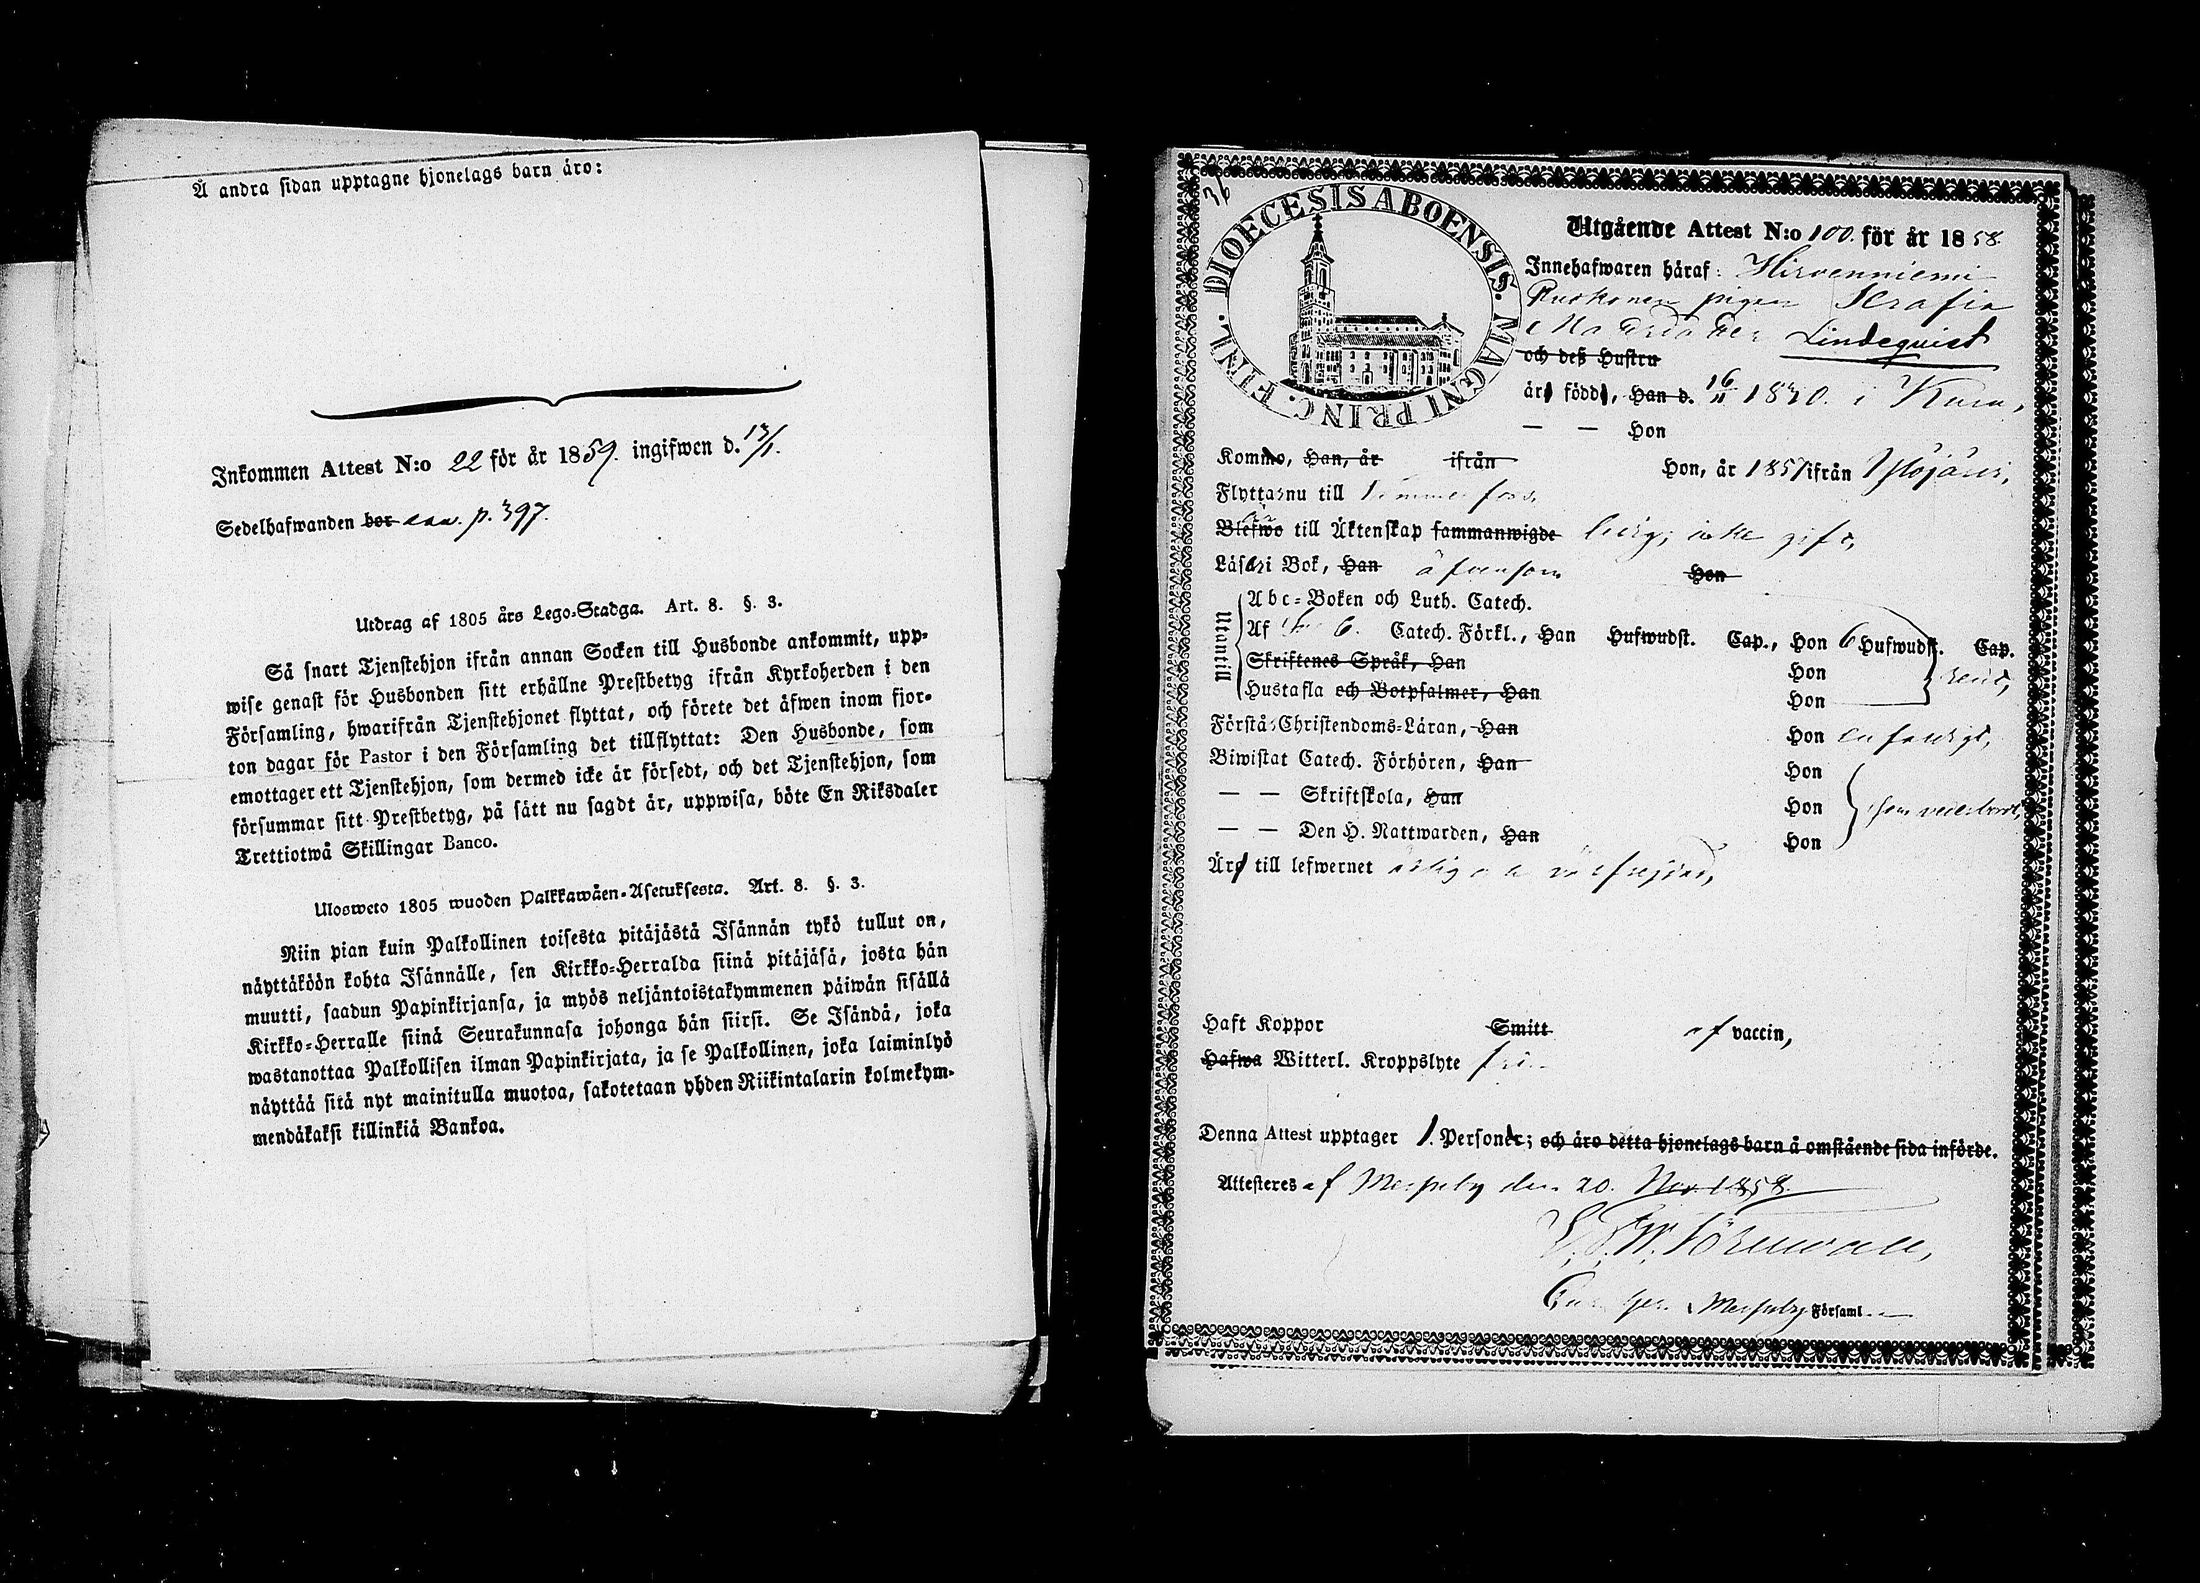 Å andra sidan upptagne hjonelags barn äro:
Inkommen Attest N:o 22 för år 1859. ingifwen d. 13/1.
Sedelhafwanden bor p. 397.
Utdrag af 1805 års Lego-Stadga. Art. 8. §. 3.
Så snart Tjenstehjon ifrån annan Socken till Husbonde ankommit, upp-
wise genast för Husbonden sitt erhållne Prestbetyg ifrån Kyrkoherden i den
Församling, hwarifrån Tjenstehjonet flyttat, och förete det äfwen inom fjor-
ton dagar för Pastor i den Församling det tillflyttat: Den Husbonde, som
emottager ett Tjenstehjon, som dermed icke är försedt, och det Tjenstehjon, som
försummar sitt Prestbetyg, på sätt nu sagdt är, uppwisa, böte En Riksdaler
Trettiotwå Skillingar Banco.
Ulosweto 1805 wuoden Palkkawäen-Asetuksesta. Art. 8. §. 3.
Niin pian kuin Palkollinen toisesta pitäjästä Isännän tykö tullut on,
näyttäköön kohta Isännälle, sen Kirkko-Herralda siinä pitäjäsä, josta hän
muutti, saadun Papinkirjansa, ja myös neljäntoistakymmenen päiwän sisällä
Kirkko-Herralle siinä Seurakunnasa johonga hän siirsi. Se Isändä, joka
wastanottaa Palkollisen ilman Papinkirjata, ja se Palkollinen, joka laiminlyö
näyttää sitä nyt mainitulla muotoa, sakotetaan yhden Riikintalarin kolmekym-
mendäkaksi killinkiä Bankoa.
36
DIOECESIS ABOENSIS. MAGNI PRINC. FINL.
Utgående Attest N:o 100. för år 1858.
Innehafwaren häraf: Hirvenniemi
Ruskonen pigan Serafia
Lindeqvist
och deß Hustru
äro födde, Han d. 16/11 1840. i Kuru,
— — Hon
Kommo, Han, år ifrån Hon, år 1857 ifrån Ylöjärvi,
Flyttar nu till Tammerfors,
Blefwo till Äktenskap sammanwigde ledig, icke gift,
Läser i Bok, Han äfvensom Hon
Utantill
Abc-Boken och Luth. Catech.
Af 6. Catech. Förkl., Han Hufwudst. Cap., Hon 6 Hufwudst. Cap.
Skriftenes Språk, Han Hon
Hustafla och Botpsalmer, Han Hon
Förstår Christendoms-Läran, Han Hon enfaldigt,
Biwistat Catech. Förhören, Han Hon
— — Skriftskola, Han Hon
— — Den H. Nattwarden, Han Hon
Äro till lefwernet ärlig och välfrejdad,
Haft Koppor Smitt af vaccin,
Hafwa Witterl. Kroppslyte fri.
Denna Attest upptager 1. Personer; och äro detta hjonelags barn å omstående sida införde.
Attesteras af Messuby den 20. Nov. 1858.
Messuby Församl.